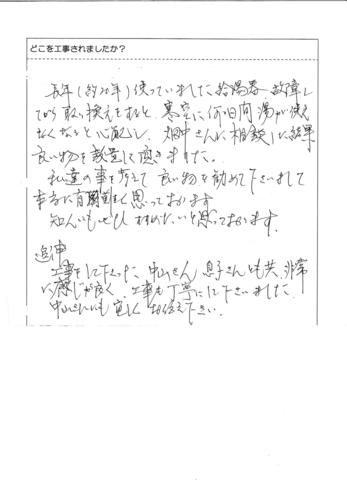 どこを工事されましたか?
長年(約20年)使っていました給湯器 故障し
てから取り換えをすると、寒空に何日間 湯が使え
なくなると心配し、畑中さんに相談した結果
良い物を設置して頂きました。
私達の事を考えて 良い物を勧めて下さいまして
本当に有難く思っております
知人にもぜひすすめたいと思っております。
追伸
工事をして下さった 中山さん 息子さんとも共、非常
に感じが良く 工事も丁寧にして下さいました
中山さんにも宜しく お伝え下さい。